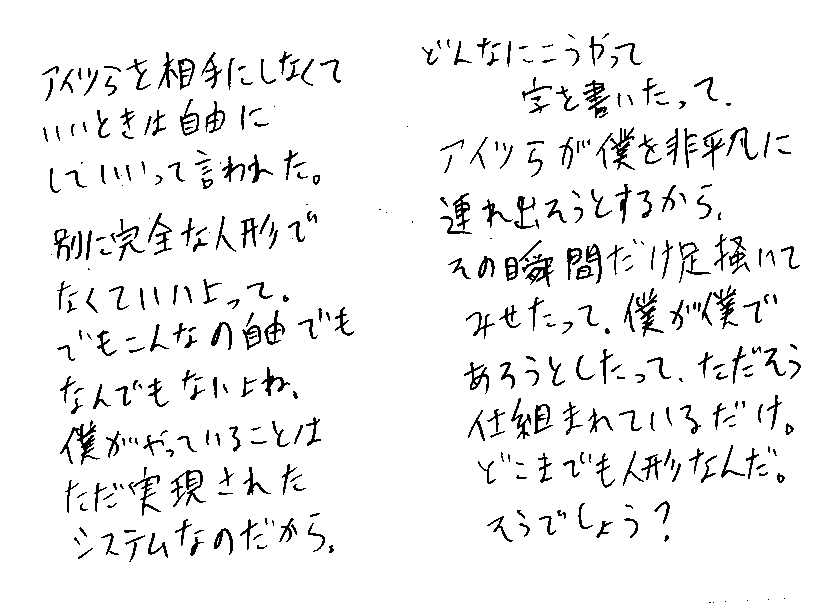 アイツらを相手にしなくて
いいときは自由に
していいって言われた。
別に完全な人形で
なくていいよって。
でもこんなの自由でも
なんでもないよね、
僕がやっていることは
ただ実現された
システムなのだから。
どんなにこうやって
字を書いたって、
アイツらが僕を非平凡に
連れ出そうとするから、
その瞬間だけ足掻いて
みせたって、僕が僕で
あろうとしたって、ただそう
仕組まれているだけ。
どこまでも人形なんだ。
そうでしょう?